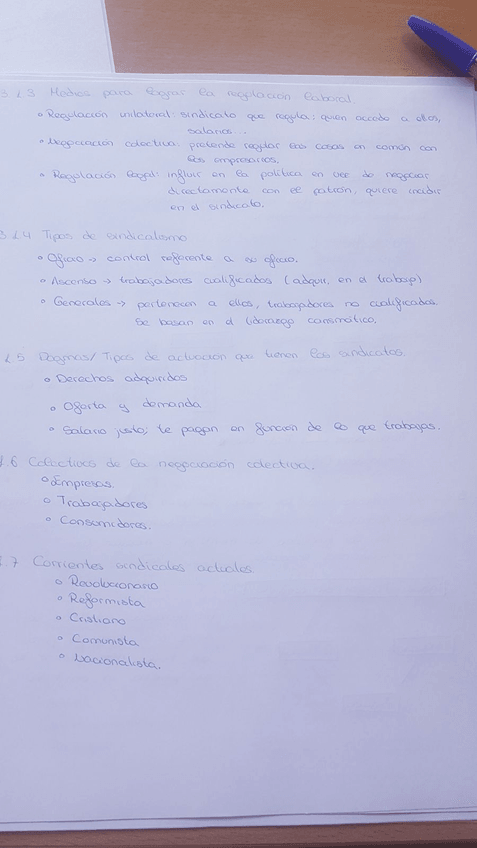 3.2.3 Medios para lograr la regulación laboral.
• Regulación unilateral: sindicato que regula: quien accede a ellos,
salarios...
• Negociación colectiva: pretende regular las cosas en común con
los empresarios.
• Regulación legal: influir en la política en vez de negociar
directamente con el patrón, quiere incidir
en el sindicato.
3.2.4 Tipos de sindicalismo
• Oficio → control referente a su oficio.
• Ascenso → trabajadores cualificados (adquir. en el trabajo)
• Generales → pertenecen a ellos, trabajadores no cualificados
se basan en el liderazgo carismático.
2.5 Dogmas/Tipos de actuación que tienen los sindicatos.
• Derechos adquiridos
• Oferta y demanda
• Salario justo; te pagan en función de lo que trabajas.
2.6 Colectivos de la negociación colectiva.
• Empresas.
• Trabajadores
• Consumidores.
.7 Corrientes sindicales actuales
• Revolucionario
• Reformista
• Cristiano
• Comunista
• Nacionalista.